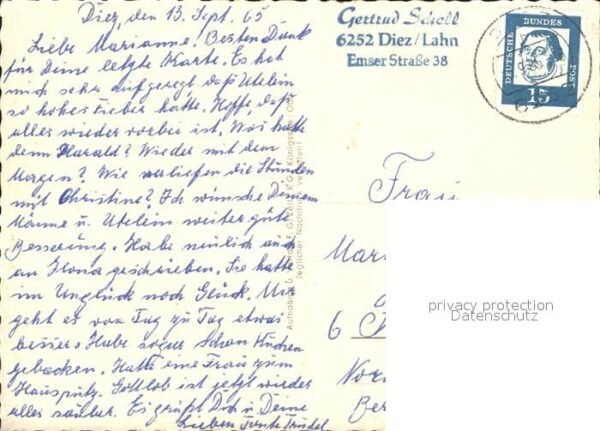 Diez, den 13. Sept. 65
Liebe Marianne! Besten Dank
für Deine letzte Karte. Es hat
mich sehr aufgeregt, daß Utelein
so hohes Fieber hatte. Hoffe, daß
alles wieder vorbei ist. Was hatte
denn Harald? Wieder mit dem
Magen? Wie verliefen die Stunden
mit Christine? Ich wünsche Deinem
Manne u. Utelein weiter gute
Besserung. Habe neulich auch
an Ilona geschrieben. Sie hatte
im Unglück noch Glück. Mir
geht es von Tag zu Tag etwas
besser. Habe sogar schon Kuchen
gebacken. Hatte eine Frau zum
Hausputz. Gottlob ist jetzt wieder
alles sauber. Es grüßt Dich u. Deine
Lieben Tante Trudel
Gertrud Scholl
6252 Diez/Lahn
Emser Straße 38
DEUTSCHE BUNDES POST
15
Jeglicher Nachdruck verboten!
Frau
Mar
6
Nor
Ber
privacy protection
Datenschutz